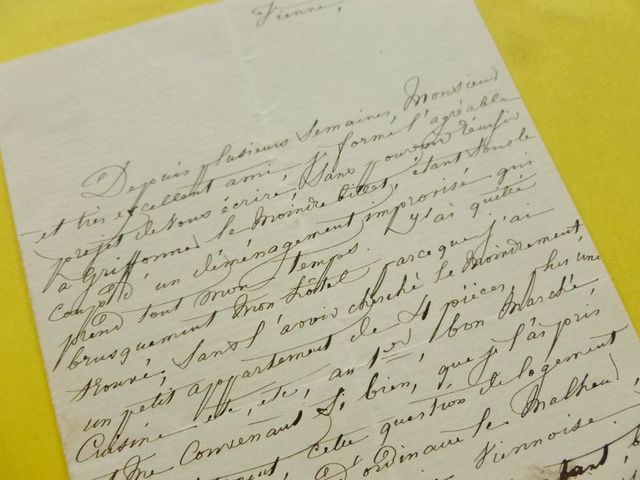 Vienne,
Depuis plusieurs semaines, Monsieur
et très excellent ami, je forme l'agréable
projet de vous écrire, sans pouvoir réussir
à griffonner le moindre billet, étant sous le
coup d'un déménagement improvisé qui
prend tout mon temps. J'ai quitté
brusquement mon hôtel parce que j'ai
trouvé, sans l'avoir cherché le moindrement,
un petit appartement de 4 pièces, plus une
Cuisine etc, etc, au 1er, bon marché,
et me convenant si bien, que je l'ai pris
cette question de logement
D'ordinaire le Malheur,
Viennoise.